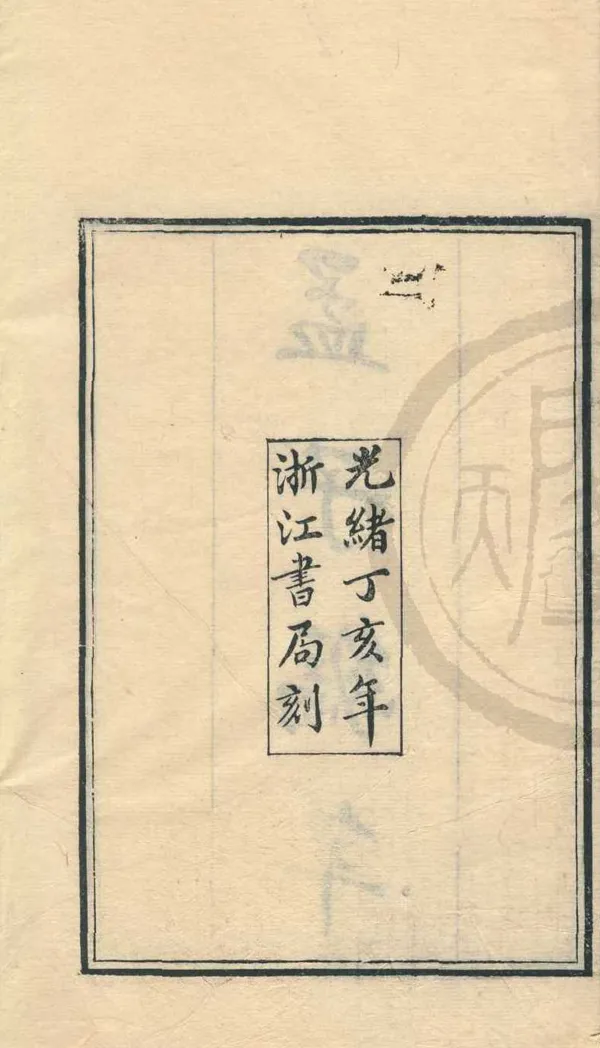 光緒丁亥年
浙江書局刻